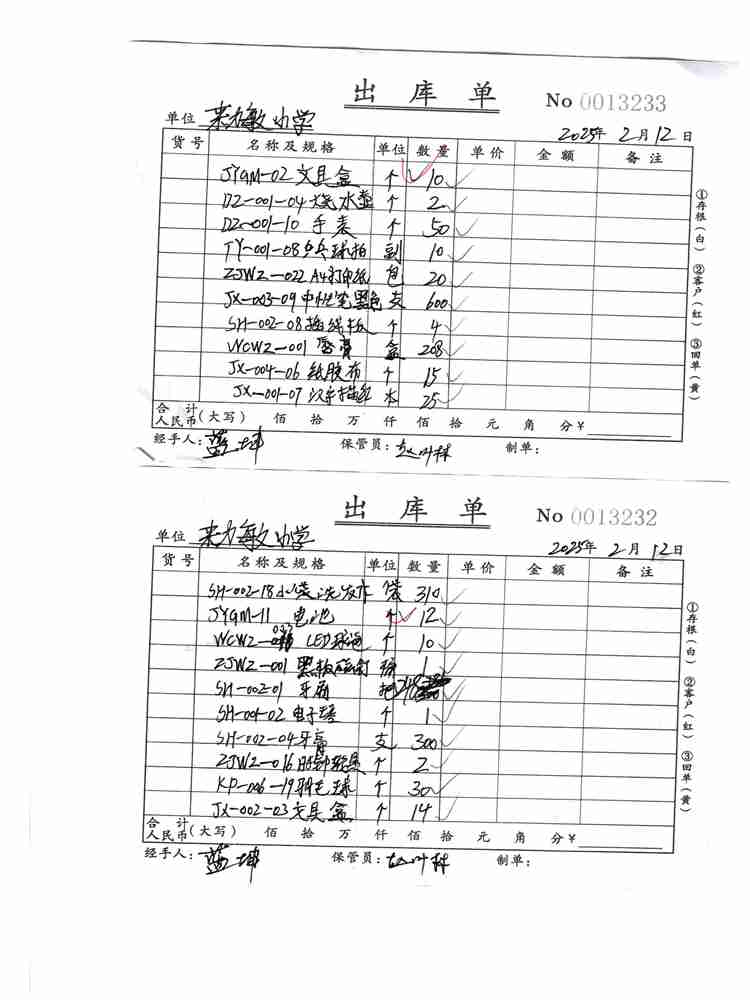 出 库 单 No 0013233
单位 来力敏小学 2025年 2月12日
货号 名称及规格 单位 数量 单价 金额 备注
JYGM-02 文具盒 个 10
DZ-001-04 烧水壶 个 2
DZ-001-10 手表 个 50
TY-001-08 乒乓球拍 副 10
ZJWZ-022 A4打印纸 包 20
JX-003-09 中性笔黑色 支 600
SH-002-08 插线板 个 4
WCWZ-001 盒 208
JX-004-06 纸胶布 个 15
JX-001-07 汉字描红 本 25
合计人民币(大写) 佰 拾 万 仟 佰 拾 元 角 分¥
经手人: 蓝坤 保管员: 赵叶林 制单:
①存根(白) ②客户(红) ③回单(黄)
出 库 单 No 0013232
单位 来力敏小学 2025年 2月12日
货号 名称及规格 单位 数量 单价 金额 备注
SH-002-18 小袋洗发水 袋 310
JYGM-11 电池 个 12
WCWZ-037 LED球泡 个 10
ZJWZ-001 黑板磁钉 1
SH-002-01 牙刷 把 298
SH-001-02 电子 个 1
SH-002-04 牙膏 支 300
ZJWZ-016 时钟 个 2
KP-006-19 羽毛球 个 30
JX-002-03 文具盒 个 14
合计人民币(大写) 佰 拾 万 仟 佰 拾 元 角 分¥
经手人: 蓝坤 保管员: 赵叶林 制单:
①存根(白) ②客户(红) ③回单(黄)